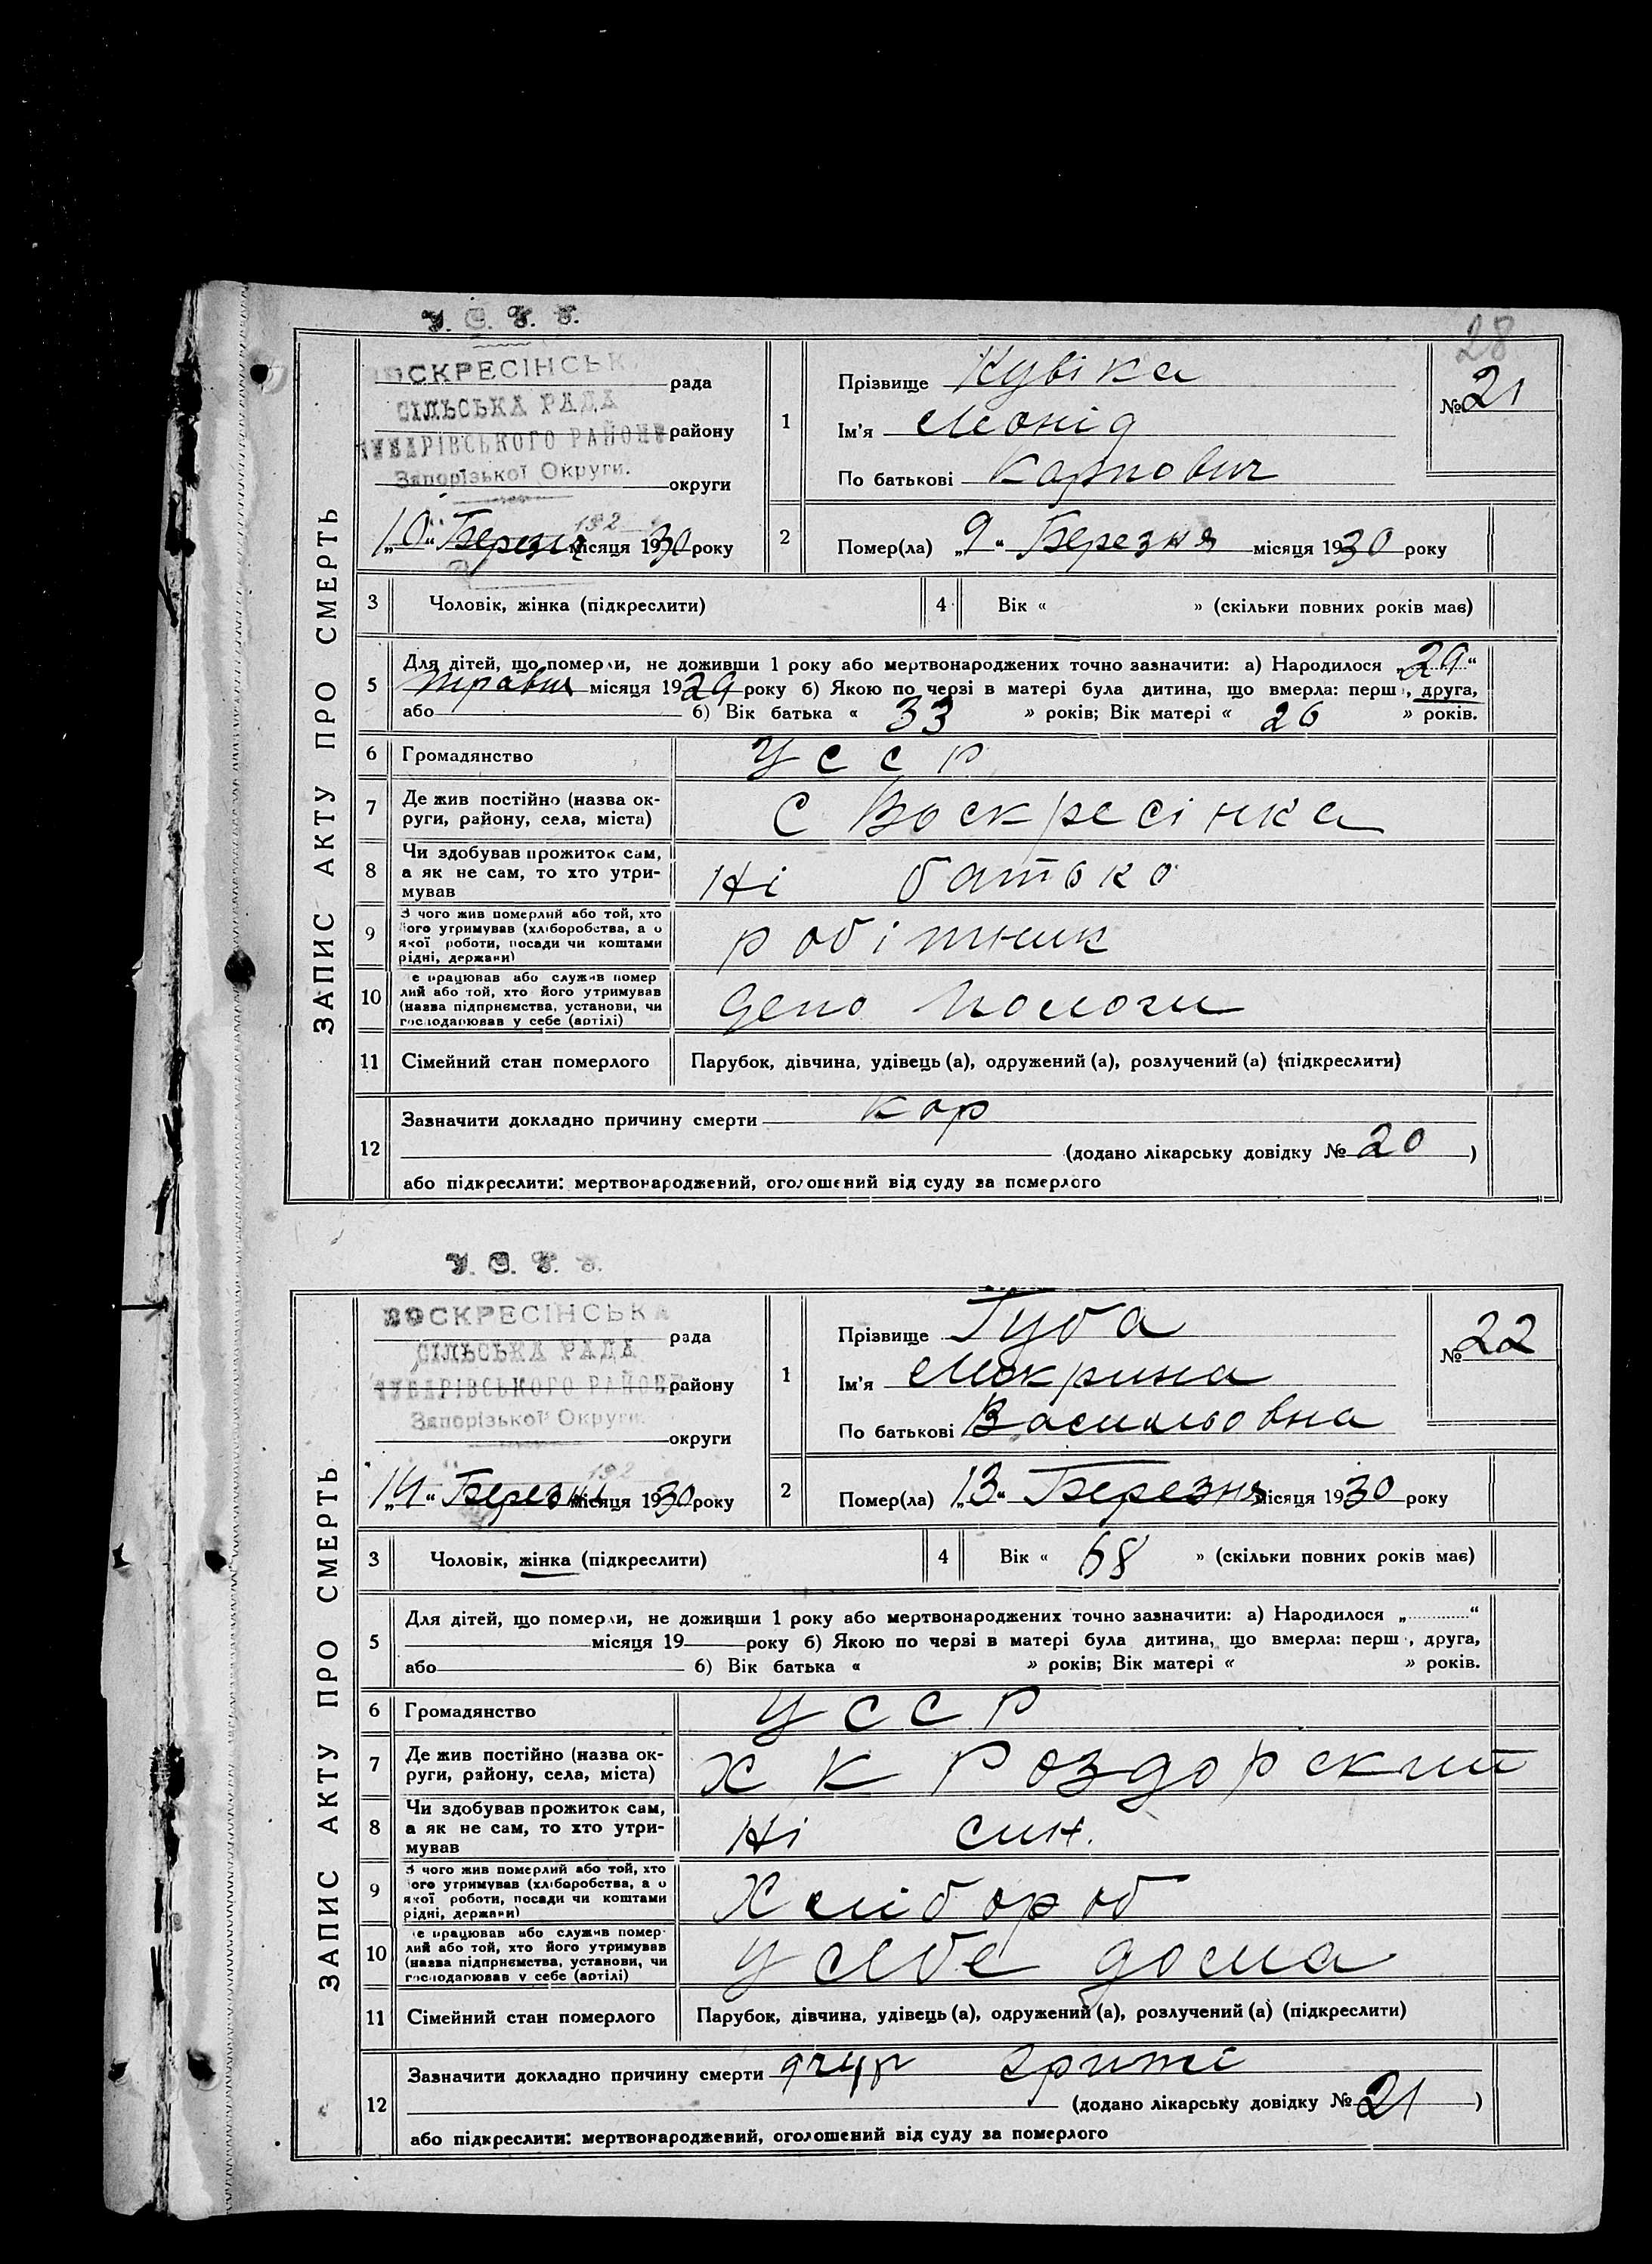 28
У. С. Р. Р.
ВОСКРЕСІНСЬК
рада
СІЛЬСЬКА РАДА
району
ЧУБАРІВСЬКОГО РАЙОНУ
Запорізької Округи.
округи
192
„10“ Березня місяця 1930 року
ЗАПИС АКТУ ПРО СМЕРТЬ
1
Прізвище Кувіка
Ім'я Леонід
По батькові Карпович
№ 21
2
Помер(ла) „9“ Березня місяця 1930 року
3 Чоловік, жінка (підкреслити)
4 Вік « » (скільки повних років має)
5 Для дітей, що померли, не доживши 1 року або мертвонароджених точно зазначити: а) Народилося „29“
травня місяця 1929 року б) Якою по черзі в матері була дитина, що вмерла: перш, друга,
або б) Вік батька « 33 » років; Вік матері « 26 » років.
6 Громадянство УССР
7 Де жив постійно (назва ок-
руги, району, села, міста) С Воскресінка
8 Чи здобував прожиток сам,
а як не сам, то хто утри-
мував Ні батько
9 З чого жив померлий або той, хто
його утримував (хліборобства, а о
якої роботи, посади чи коштами
рідні, держави) робітник
10 е працював або служив помер
лий або той, хто його утримував
(назва підприємства, установи, чи
господарював у себе (артілі) Депо Пологи
11 Сімейний стан померлого Парубок, дівчина, удівець (а), одружений (а), розлучений (а) (підкреслити)
12 Зазначити докладно причину смерти кор
(додано лікарську довідку № 20 )
або підкреслити: мертвонароджений, оголошений від суду за померлого
У. С. Р. Р.
ВОСКРЕСІНСЬКА
рада
СІЛЬСЬКА РАДА
ЧУБАРІВСЬКОГО РАЙОНУ
району
Запорізької Округи.
округи
192
„14“ Березня місяця 1930 року
ЗАПИС АКТУ ПРО СМЕРТЬ
1
Прізвище Губа
Ім'я Мокрина
По батькові Васильовна
№ 22
2
Помер(ла) „13“ Березня місяця 1930 року
3 Чоловік, жінка (підкреслити)
4 Вік « 68 » (скільки повних років має)
5 Для дітей, що померли, не доживши 1 року або мертвонароджених точно зазначити: а) Народилося „ “
місяця 19 року б) Якою по черзі в матері була дитина, що вмерла: перш, друга,
або б) Вік батька « » років; Вік матері « » років.
6 Громадянство УССР
7 Де жив постійно (назва ок-
руги, району, села, міста) Х К Роздорский
8 Чи здобував прожиток сам,
а як не сам, то хто утри-
мував Ні син.
9 З чого жив померлий або той, хто
його утримував (хліборобства, а о
якої роботи, посади чи коштами
рідні, держави) Хлібороб
10 е працював або служив помер
лий або той, хто його утримував
(назва підприємства, установи, чи
господарював у себе (артілі) У себе дома
11 Сімейний стан померлого Парубок, дівчина, удівець (а), одружений (а), розлучений (а) (підкреслити)
12 Зазначити докладно причину смерти
(додано лікарську довідку № 21 )
або підкреслити: мертвонароджений, оголошений від суду за померлого